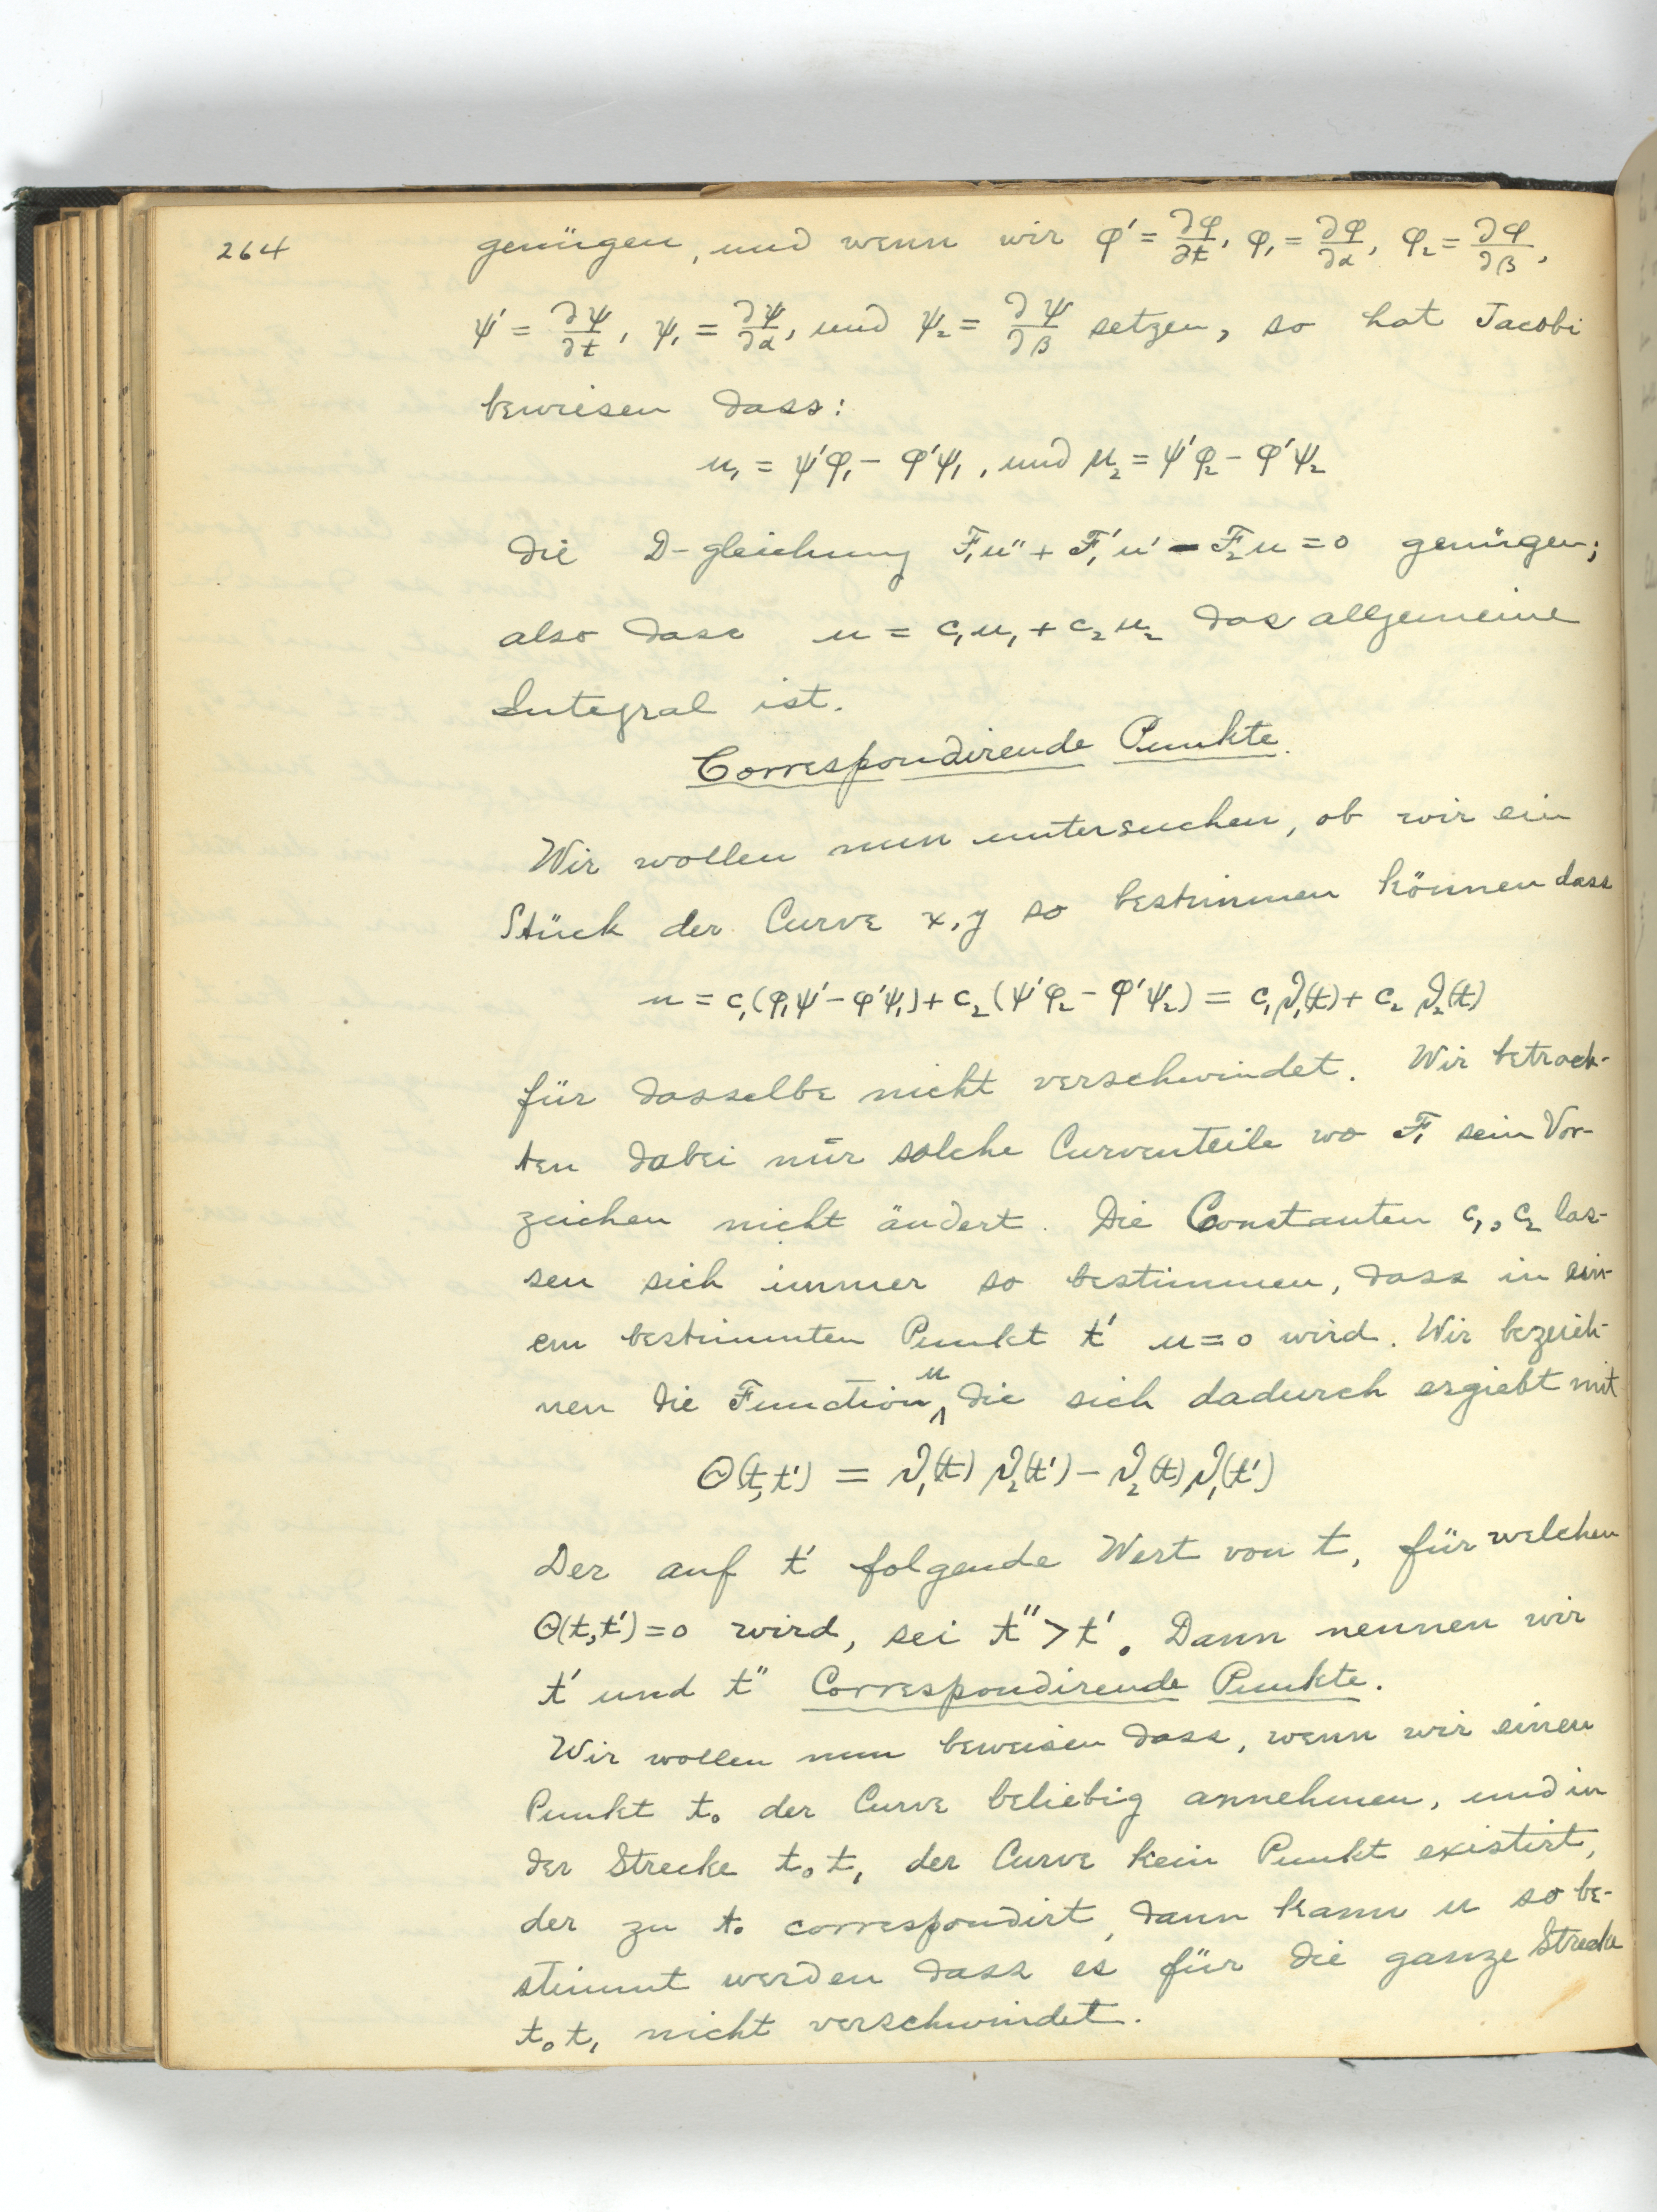 264
genügen, und wenn wir φ′ = ∂φ/∂t, φ₁ = ∂φ/∂α, φ₂ = ∂φ/∂β,
ψ′ = ∂ψ/∂t, ψ₁ = ∂ψ/∂α, und ψ₂ = ∂ψ/∂β setzen, so hat Jacobi
bewiesen dass:
u₁ = ψ′φ₁ − φ′ψ₁, und u₂ = ψ′φ₂ − φ′ψ₂
die D-gleichung F₁u″ + F₁′u′ − F₂u = 0 genügen;
also dass u = c₁u₁ + c₂u₂ das allgemeine
Integral ist.
Correspondirende Punkte.
Wir wollen nun untersuchen, ob wir ein
Stück der Curve x, y so bestimmen können dass
u = c₁(φ₁ψ′ − φ′ψ₁) + c₂(ψ′φ₂ − φ′ψ₂) = c₁ϑ₁(t) + c₂ϑ₂(t)
für dasselbe nicht verschwindet. Wir betrach-
ten dabei nur solche Curventeile wo F₁ sein Vor-
zeichen nicht ändert. Die Constanten c₁, c₂ las-
sen sich immer so bestimmen, dass in ein-
em bestimmten Punkt t′ u = 0 wird. Wir bezeich-
nen die Function u die sich dadurch ergiebt mit
Θ(t, t′) = ϑ₁(t) ϑ₂(t′) − ϑ₂(t) ϑ₁(t′)
Der auf t′ folgende Wert von t, für welchen
Θ(t, t′) = 0 wird, sei t″ > t′. Dann nennen wir
t′ und t″ Correspondirende Punkte.
Wir wollen nun beweisen dass, wenn wir einen
Punkt t₀ der Curve beliebig annehmen, und in
der Strecke t₀t₁ der Curve kein Punkt existirt,
der zu t₀ correspondirt, dann kann u so be-
stimmt werden dass es für die ganze Strecke
t₀t₁ nicht verschwindet.